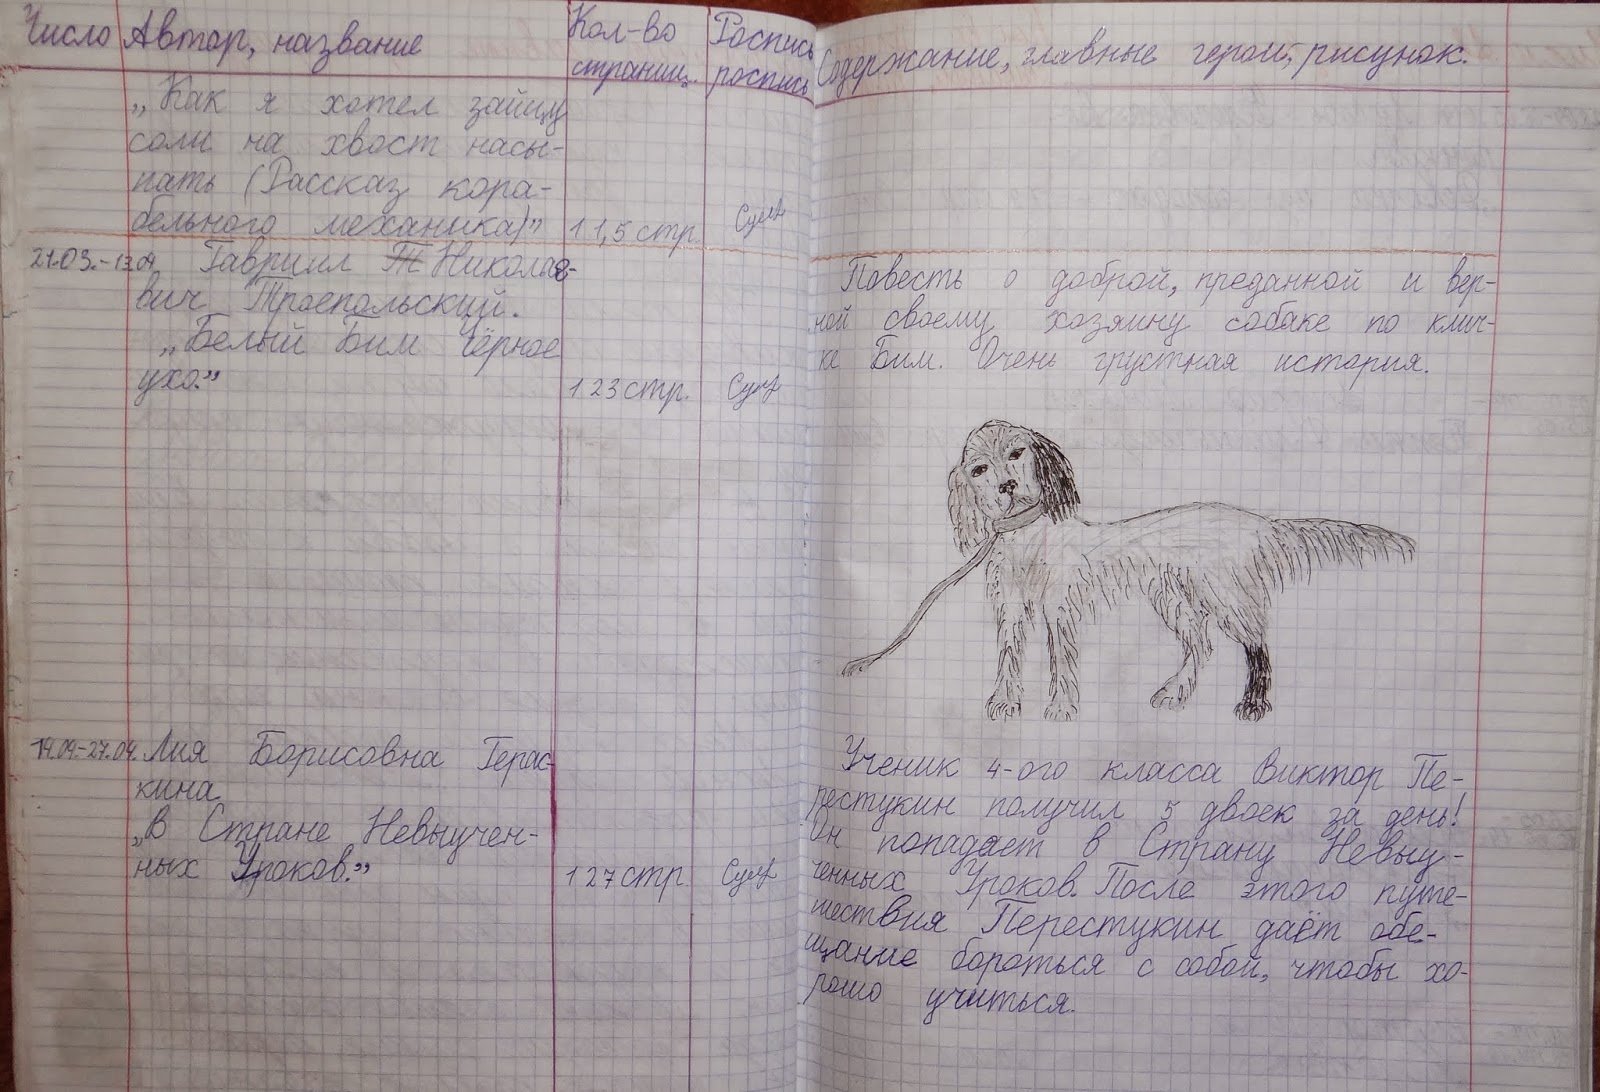 Число Автор, название Кол-во страниц. Роспись роспись Содержание, главные герои, рисунок.
„Как я хотел зайцу
соли на хвост насы-
пать (Рассказ кора-
бельного механика)” 11,5 стр.
21.03.-13.04. Гавриил Николае-
вич Троепольский.
„Белый Бим Чёрное
ухо.” 123 стр.
Повесть о доброй, преданной и вер-
ной своему хозяину собаке по клич-
ке Бим. Очень грустная история.
14.04.-27.04. Лия Борисовна Герас-
кина
„В Стране Невыучен-
ных Уроков.” 127 стр.
Ученик 4-ого класса Виктор Пе-
рестукин получил 5 двоек за день!
Он попадает в Страну Невыу-
ченных Уроков. После этого путе-
шествия Перестукин даёт обе-
щание бороться с собой, чтобы хо-
рошо учиться.